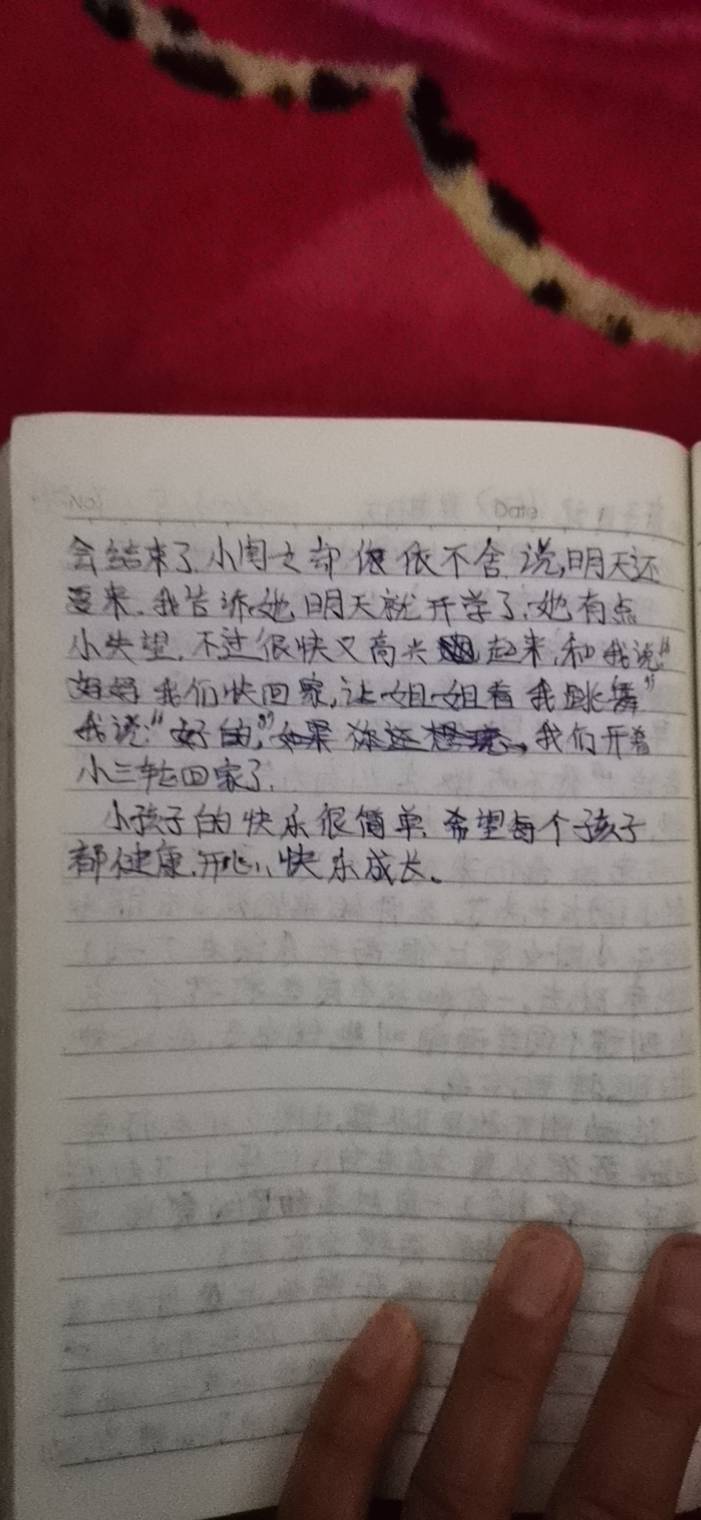 会结束了.小闺女都很依不舍.说,明天还
要来.我告诉她,明天就开学了,她有点
小失望.不过很快又高兴起来,和我说"
妈妈我们快回家,让姐姐看我跳舞"
我说:"好的,"如果你还想玩,我们开着
小三轮回家了.
小孩子的快乐很简单.希望每个孩子
都健康.开心,快乐成长。